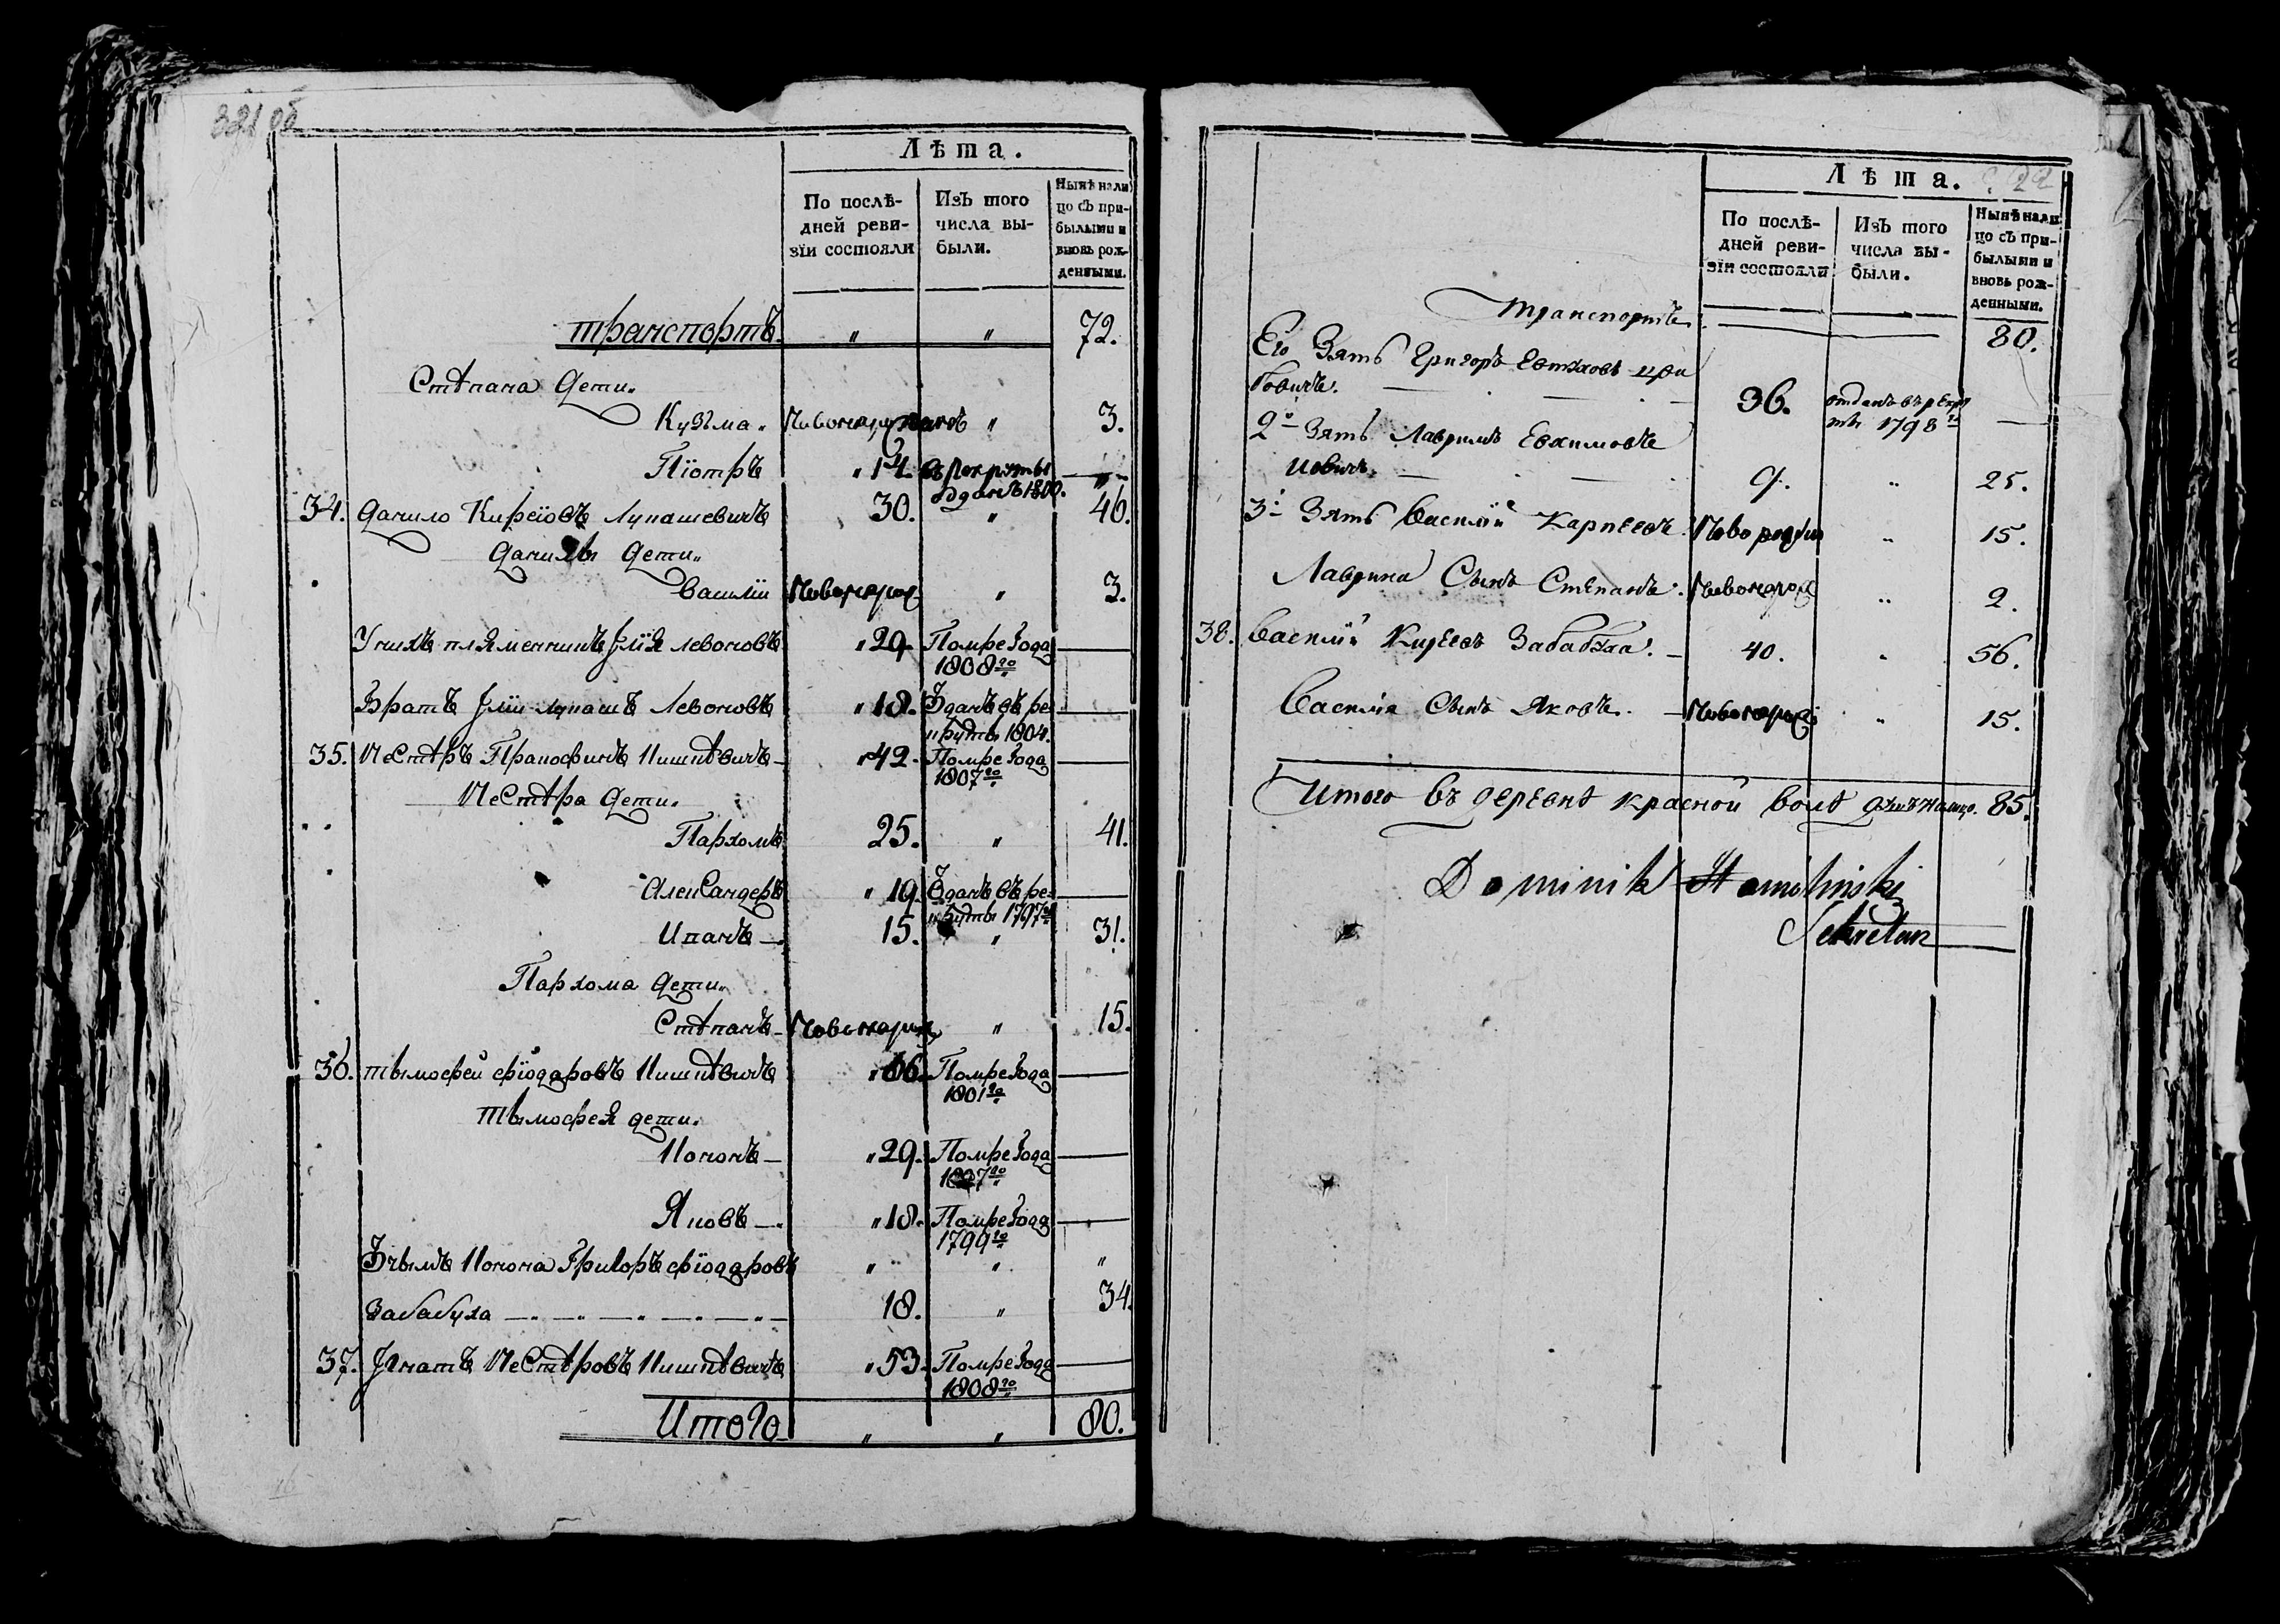 321 об
Лѣта.
По послѣ-
дней реви-
зіи состояли
Изъ того
числа вы-
были.
Нынѣ нали
цо съ при-
былыми и
вновь рож-
денными.
транспортъ „ „ 72.
Стѣпана дети.
Кузма „ Новонарожданъ „ 3.
Піотръ „ 14. въ рекруты
одданъ 1800.
34. Данило Киреіовъ Лупашевичъ 30. „ 46.
Данилы дети.
Василіи Новонарод „ 3.
У нихъ племенникъ Левоновъ „ 29. Помре года
1808го
Братъ Лупашъ Левоновъ „ 18. Зданъ въ ре
круты 1804.
35. Нестѣръ Прановичъ „ 42. Помре года
1807го
Нестѣра дети.
Пархомъ 25. „ 41.
Александеръ „ 19. Зданъ въ ре
круты 1797го
Иванъ 15. „ 31.
Пархома дети.
Стѣпанъ Новонарод „ 15.
36. тымофей фіодаровъ „ 66. Помре года
1801го
Тымофея дети.
Кононъ „ 29. Помре года
1807го
Яковъ „ 18. Помре года
1799го
Конона Григоръ фіодаровъ „ „ „
Забабуха 18. „ 34.
37. Игнатъ Нестѣровъ „ 53. Помре года
1808го
Итого „ „ 80.
Лѣта.
По послѣ-
дней реви-
зіи состояли
Изъ того
числа вы-
были.
Нынѣ нали
цо съ при-
былыми и
вновь рож-
денными.
транспортъ 80.
Его Зять Григоръ Евтиховъ
бовичъ. 36. отданъ въ рекру
ты 1798го
2й Зять Лавринъ Евхимовъ
9. „ 25.
3й Зять Василій Карпеевъ Новорожд „ 15.
Лаврина Сынъ Стѣпанъ. Новонарод „ 2.
38. Василій Киреевъ Забабуха. 40. „ 56.
Василія Сынъ Яковъ. Новонарод „ 15.
Итого въ деревнѣ красной волѣ душъ налицо. 85.
Dominik
Sekretarz